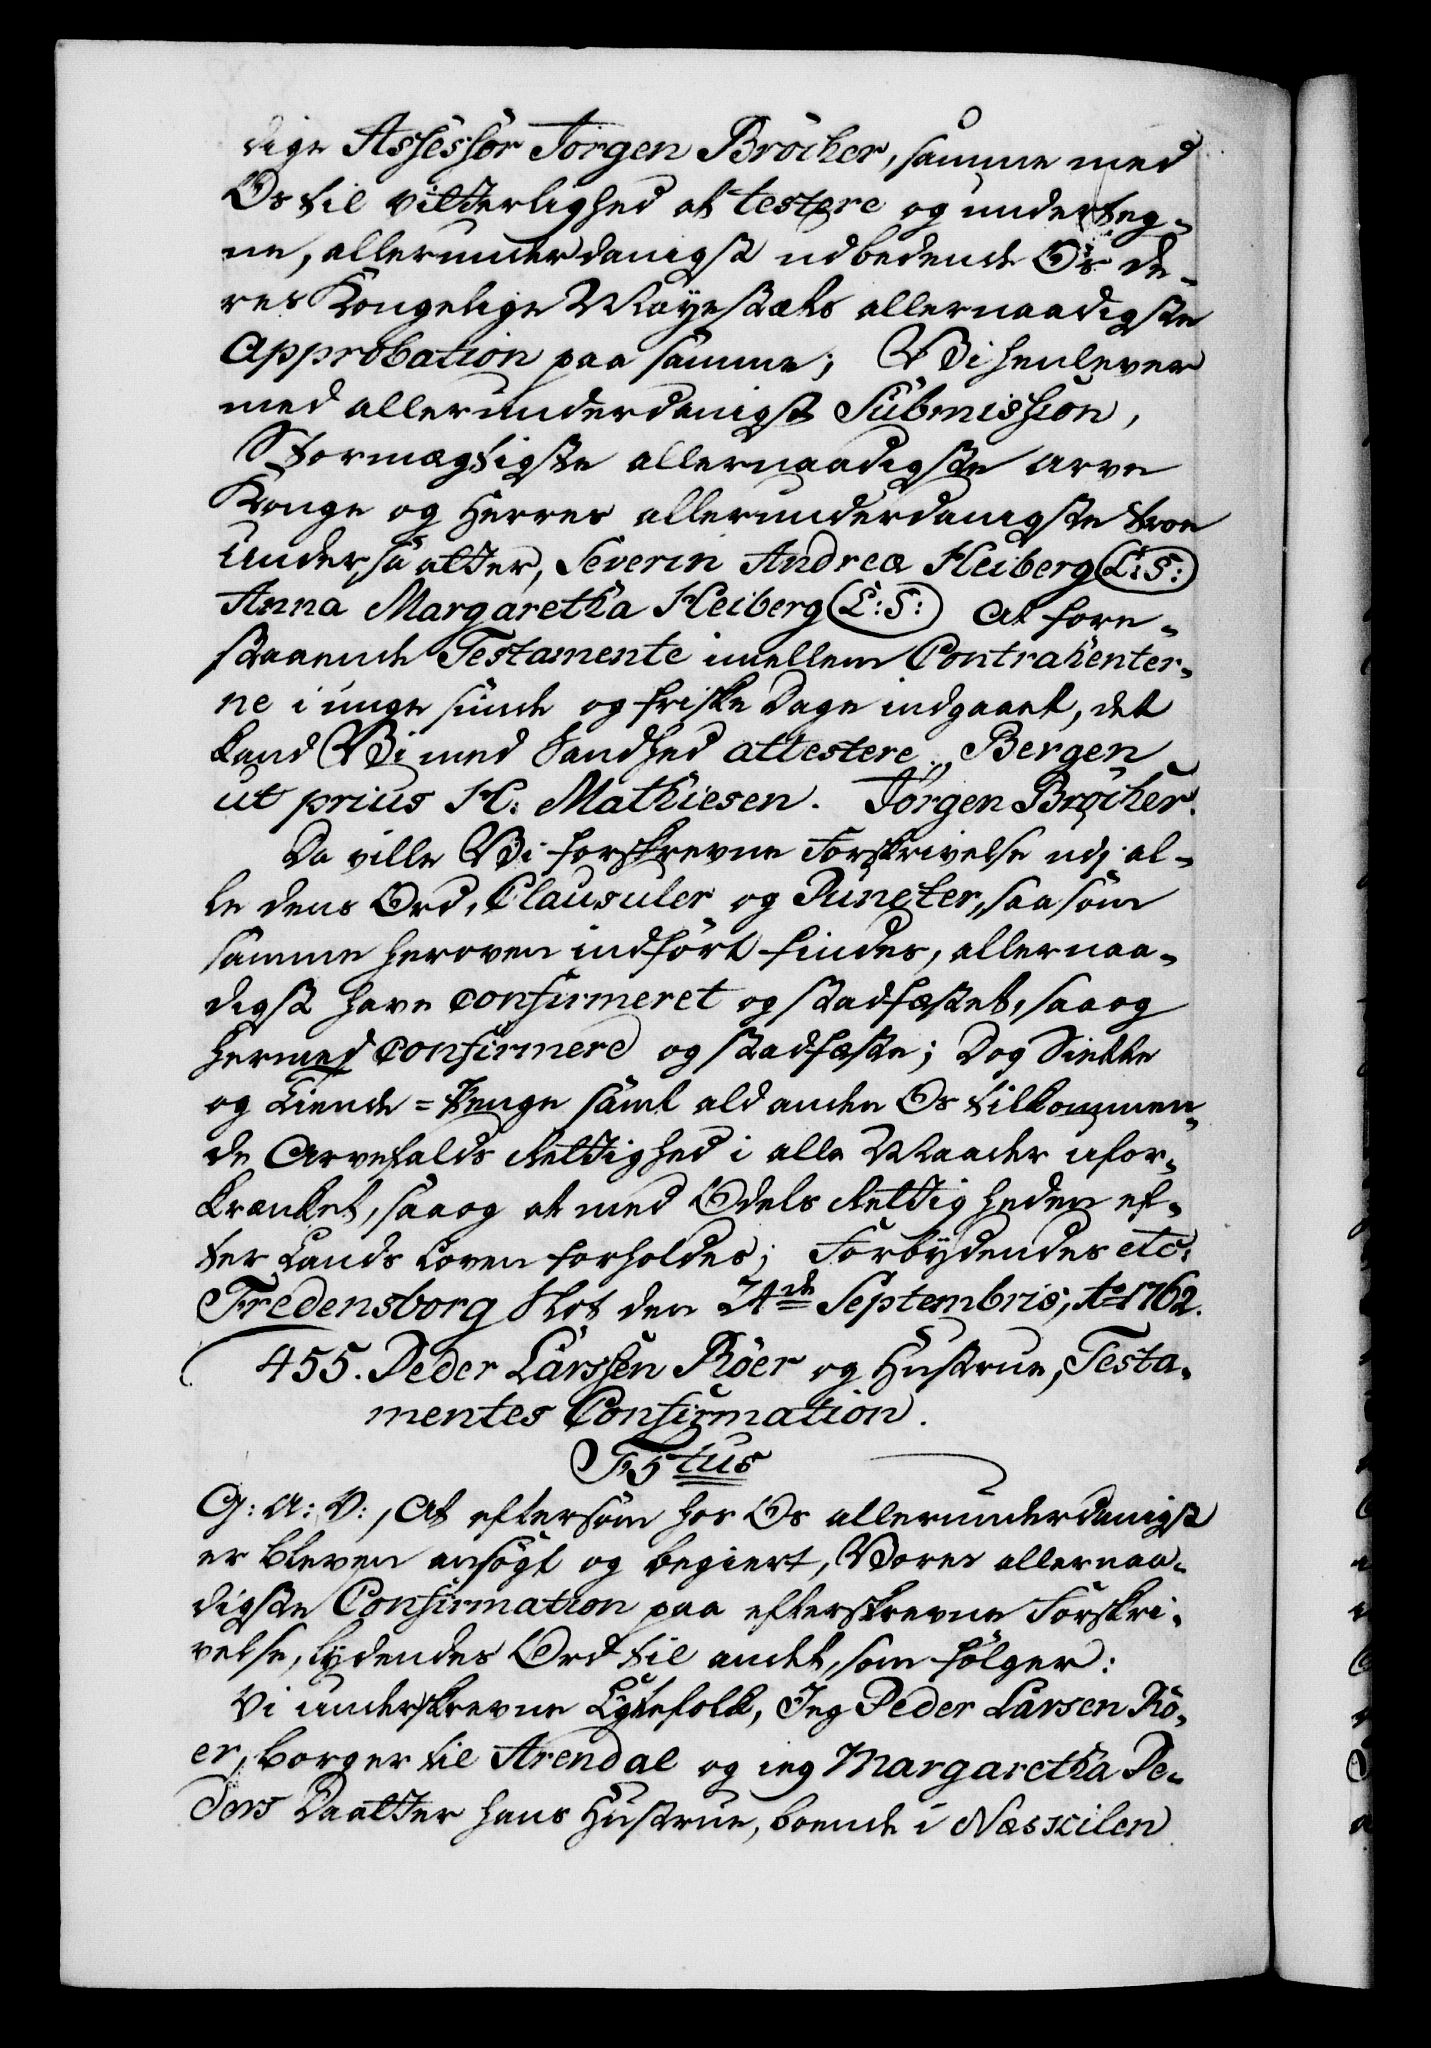 dige Assessor Jörgen Bröcher, samme med
Os til vitterlighed at testere og underteg-
ne, allerunderdanigst udbedende Os de-
res Kongelige Mayestæts allernaadigste
Approbation paa samme; Vi henlever
med allerunderdanigst Submission,
Stormægtigste allernaadigste arve
Konge og Herres allerunderdanigste troe
undersaatter, Severin Andreæ Heiberg (L:S:)
Anna Margaretha Heiberg (L:S:) At fore-
staaende Testamente imellem Contrahenter-
ne i unge sunde og friske Dage indgaaet, det
kand Vi med Sandhed attestere. Bergen
ut prius H: Mathiesen. Jörgen Bröcher.
Da ville Vi forskrevne Forskrivelse udj al-
le dens Ord, Clausuler og Puncter, saasom
samme heroven indfört findes, allernaa-
digst have confirmeret og stadfæstet, saa og
hermed confirmere og stadfæste; Dog Siette
og Tiende = Penge samt ald anden Os tilkommen-
de Arvefalds Rettighed i alle Maader ufor-
krænket, saa og at med Odels Rettigheden ef-
ter Lands Loven forholdes; Forbydendes etc:
Fredensborg Slot den 24de Septembris, Ao 1762.
455. Peder Larssen Röer og Hustrue, Testa-
mentes Confirmation.
F5tus
G: A: V:, At eftersom hos Os allerunderdanigst
er bleven ansögt og begiert, Vores allernaa-
digste Confirmation paa efterskrevne Forskri-
velse, lydendes Ord til andet, som fölger:
Vi underskrevne Egtefolk, Jeg Peder Larsen Rö-
er, borger til Arendal og ieg Margaretha Pe-
ders Daatter hans Hustrue, boende i Næskilen